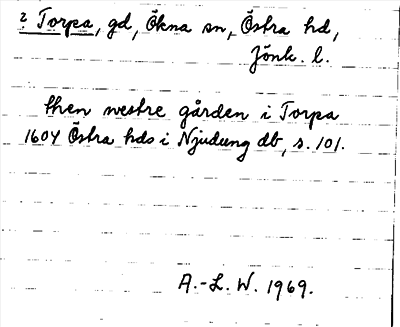 2 Torpa, gd, Ökna sn, Östra hd,
Jönk. l.
then westre gården i Torpa
1604 Östra hds i Njudung db, s. 101.
A.-L. W. 1969.